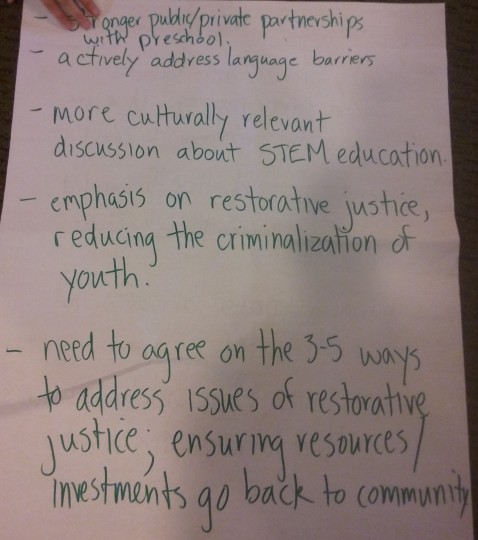 - stronger public/private partnerships
with preschool.
- actively address language barriers
- more culturally relevant
discussion about STEM education.
- emphasis on restorative justice,
reducing the criminalization of
youth.
- need to agree on the 3-5 ways
to address issues of restorative
justice; ensuring resources/
investments go back to community